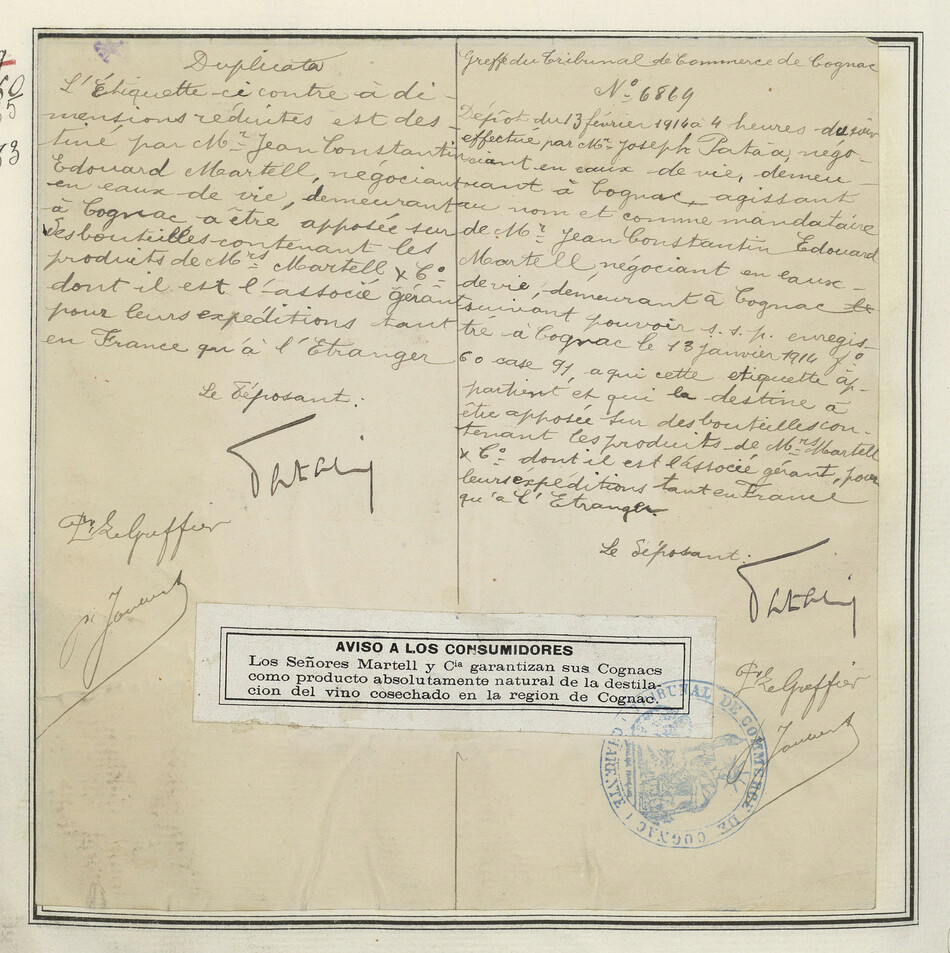 Duplicata
L'Étiquette ci contre à di-
mensions réduites est des-
tiné par Mr. Jean Constantin
Edouard Martell, négociant
en eaux-de vie, demeurant
à Cognac a être apposée sur
des bouteilles contenant les
produits de Mrs Martell & Co
dont il est l'associé gérant
pour leurs expéditions tant
en France qu'à l'Etranger
Le Déposant:
Pr. Le Greffier
Greffe du Tribunal de Commerce de Cognac
No 6869
Dépôt du 13 février 1914 à 4 heures du soir
effectué par Mr. Joseph Pataa, négo-
ciant en eaux de vie, demeu-
rant à Cognac, agissant
au nom et comme mandataire
de Mr Jean Constantin Edouard
Martell négociant en eaux-
de vie, demeurant à Cognac
suivant pouvoir s.s.p. enregis-
tré à Cognac le 13 janvier 1914 fo
60 case 91, a qui cette etiquette ap-
partient et qui la destine à
être apposée sur des bouteilles con-
tenant les produits de Mrs Martell
& Co dont il est l'associé gérant, pour
leurs expéditions tant en France
qu'à l'Etranger
Le Déposant:
Pr. Le Greffier
AVISO A LOS CONSUMIDORES
Los Señores Martell y Cia garantizan sus Cognacs
como producto absolutamente natural de la destila-
cion del vino cosechado en la region de Cognac.
TRIBUNAL DE COMMERCE DE COGNAC
CHARENTE